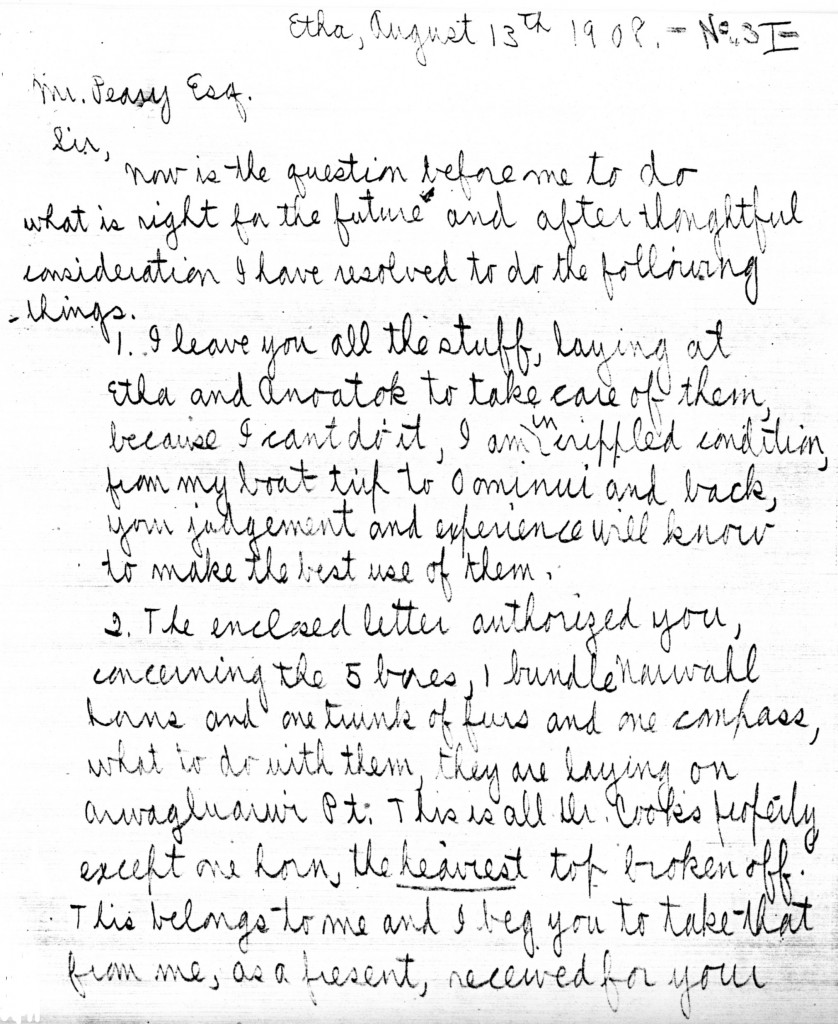 Etha, August 13th 1908. - No. 3 I
Mr. Peasy Esq.
Sir,
now is the question before me to do
what is right for the future and after thoughtful
consideration I have resolved to do the following
things.
1. I leave you all the stuff, laying at
Etha and Anoatok to take care of them,
because I cant do it, I am in crippled condition,
from my boat trip to Oominui and back,
your judgement and experience will know
to make the best use of them.
2. The enclosed letter authorized you,
concerning the 5 boxes, 1 bundle Narwahl
horns and one trunk of furs and one compass,
what to do with them, they are laying on
Pt. This is all Dr. Cooks properity
except one horn, the heaviest top broken off.
This belongs to me and I beg you to take that
from me, as a present, received for your